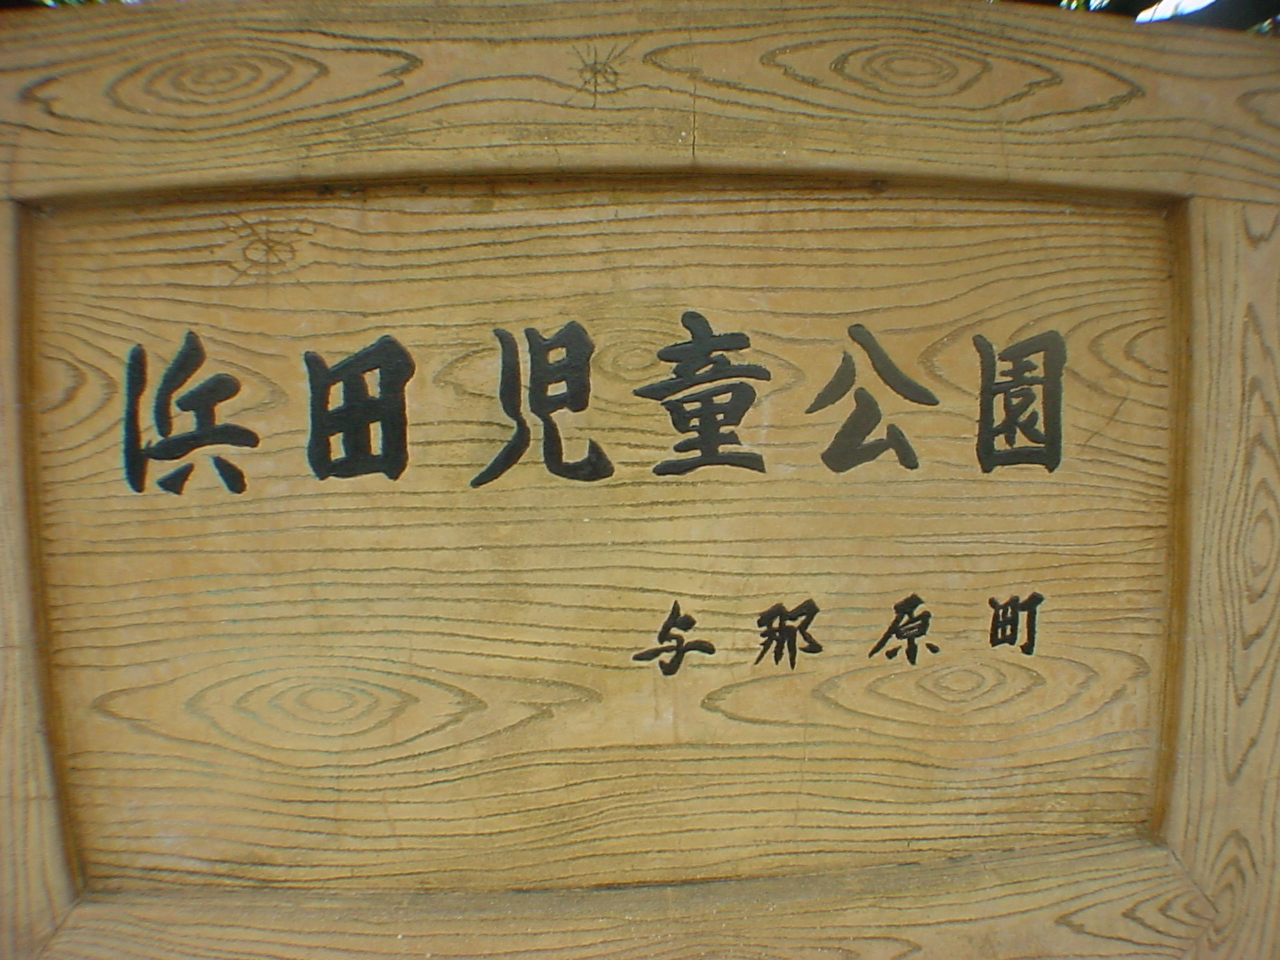 浜田児童公園
与那原町